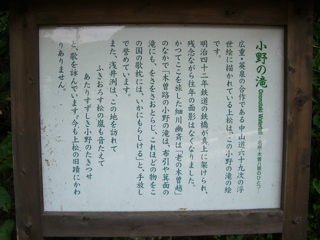 小野の滝
広重・英泉の合作である中山道六十九次の浮
世絵に描かれている上松は、この小野の滝の絵
です。
明治四十二年鉄道の鉄橋が真上に架けられ、
残念ながら往年の面影はなくなりました。
かつてここを旅した細川幽斎は「老の木曽越」
のなかで「木曽路の小野の滝は、布引や箕面の
滝にも、をさをさおとらじ、これほどの物をこ
の国の歌枕には、いかにもらしける」と、手放し
で誉めています。
また、浅井洌は、この地を訪れて
ふきおろす松の嵐も音たえて
あたりすずしき小野のたきつせ
と、歌を詠んでいます。今も上松の旧蹟にかわ
りありません。